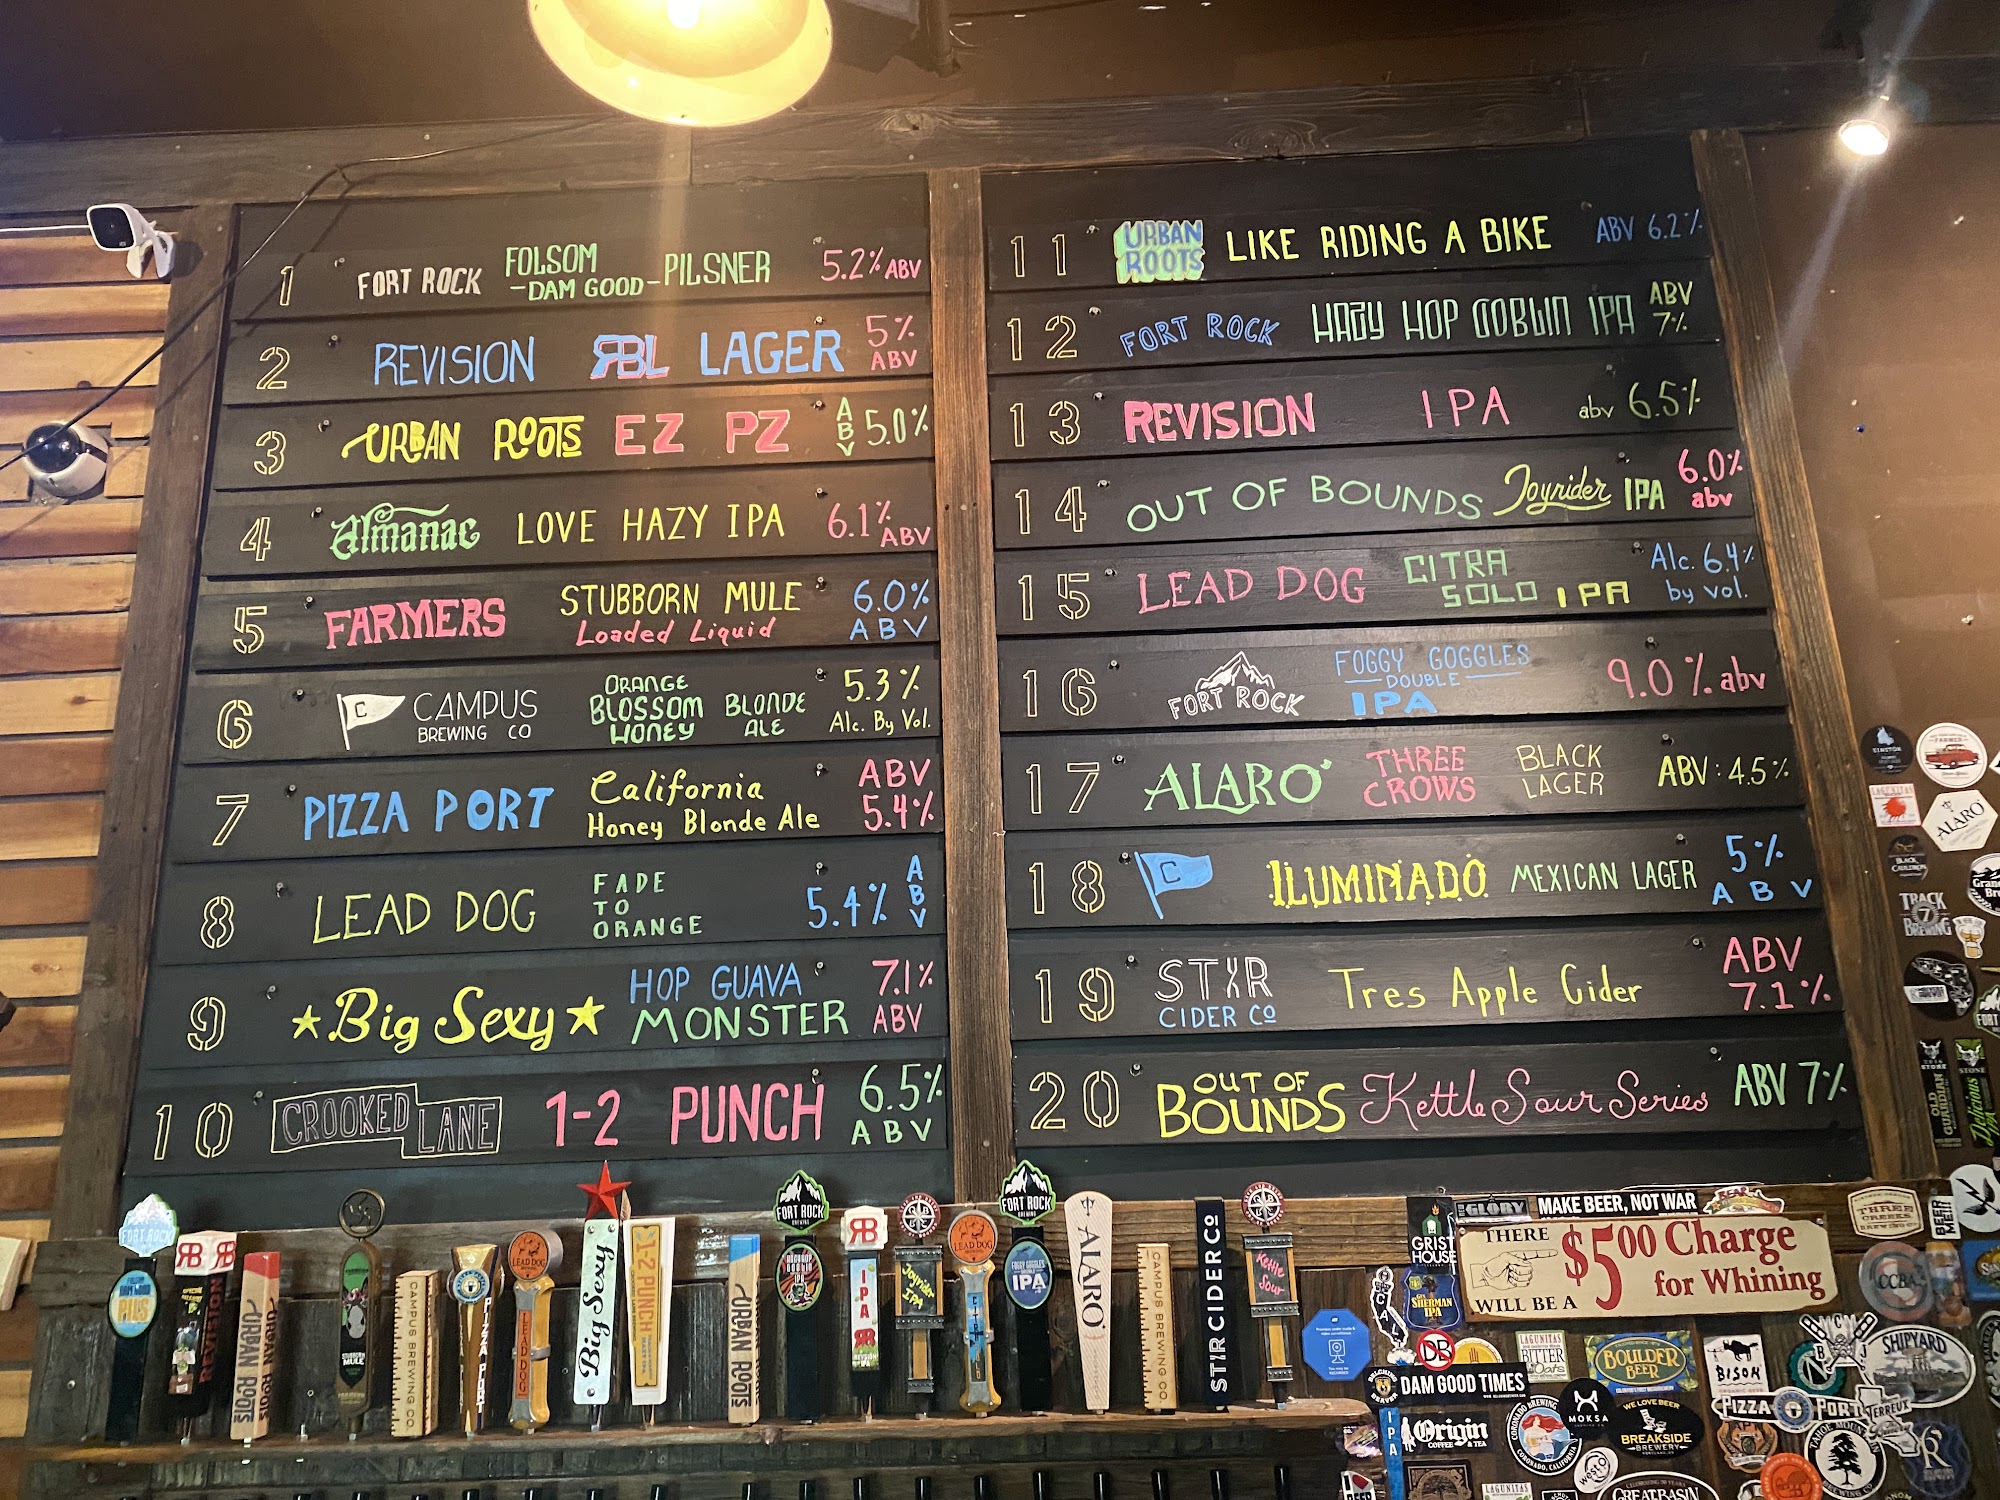 1 FORT ROCK FOLSOM -DAM GOOD- PILSNER 5.2% ABV
2 REVISION RBL LAGER 5% ABV
3 URBAN ROOTS EZ PZ ABV 5.0%
4 Almanac LOVE HAZY IPA 6.1% ABV
5 FARMERS STUBBORN MULE Loaded Liquid 6.0% ABV
6 C CAMPUS BREWING CO ORANGE BLOSSOM HONEY BLONDE ALE 5.3% Alc. By Vol.
7 PIZZA PORT California Honey Blonde Ale ABV 5.4%
8 LEAD DOG FADE TO ORANGE 5.4% ABV
9 Big Sexy HOP GUAVA MONSTER 7.1% ABV
10 CROOKED LANE 1-2 PUNCH 6.5% ABV
11 URBAN ROOTS LIKE RIDING A BIKE ABV 6.2%
12 FORT ROCK HAZY HOP GOBLIN IPA ABV 7%
13 REVISION IPA abv 6.5%
14 OUT OF BOUNDS Joyrider IPA 6.0% abv
15 LEAD DOG CITRA SOLO IPA Alc. 6.4% by vol.
16 FORT ROCK FOGGY GOGGLES DOUBLE IPA 9.0% abv
17 ALARO THREE CROWS BLACK LAGER ABV: 4.5%
18 C ILUMINADO MEXICAN LAGER 5% ABV
19 STIR CIDER CO Tres Apple Cider ABV 7.1%
20 OUT OF BOUNDS Kettle Sour Series ABV 7%
FORT ROCK
PILS
RB RB
REVISION
URBAN ROOTS
STUBBORN MULE
CAMPUS BREWING CO
PIZZA PORT
LEAD DOG
LEAD DOG
Big Sexy
1-2 PUNCH
URBAN ROOTS
FORT ROCK
BREWING
RB
IPA
RB
Joyrider IPA
LEAD DOG
FORT ROCK
BREWING
FOGGY GOGGLES
IPA
ALARO
CAMPUS BREWING CO
STIR CIDER CO
Kettle Sour
GLORY
MAKE BEER, NOT WAR
THERE WILL BE A $5.00 Charge for Whining
GRIST HOUSE
SHERMAN IPA
DB
CAL
DAM GOOD TIMES
Origin
COFFEE & TEA
IPA
LAGUNITAS
BITTER
BOULDER BEER
BISON
MOKSA
CORONADO BREWING
CORONADO, CALIFORNIA
WE LOVE BEER
BREAKSIDE
BREWERY
PIZZA PORT
SHIPYARD
TERREUX
TAHOE MOUNTAIN
West
GREAT BASIN
LAGUNITAS
THREE CREEKS
BREWING
BEER MEN
CCBA
FARMER
LAGUNITAS
ALARO
BLACK CAULDRON
TRACK 7 BREWING
STONE
OLD GUARDIAN
STONE
Delicious IPA